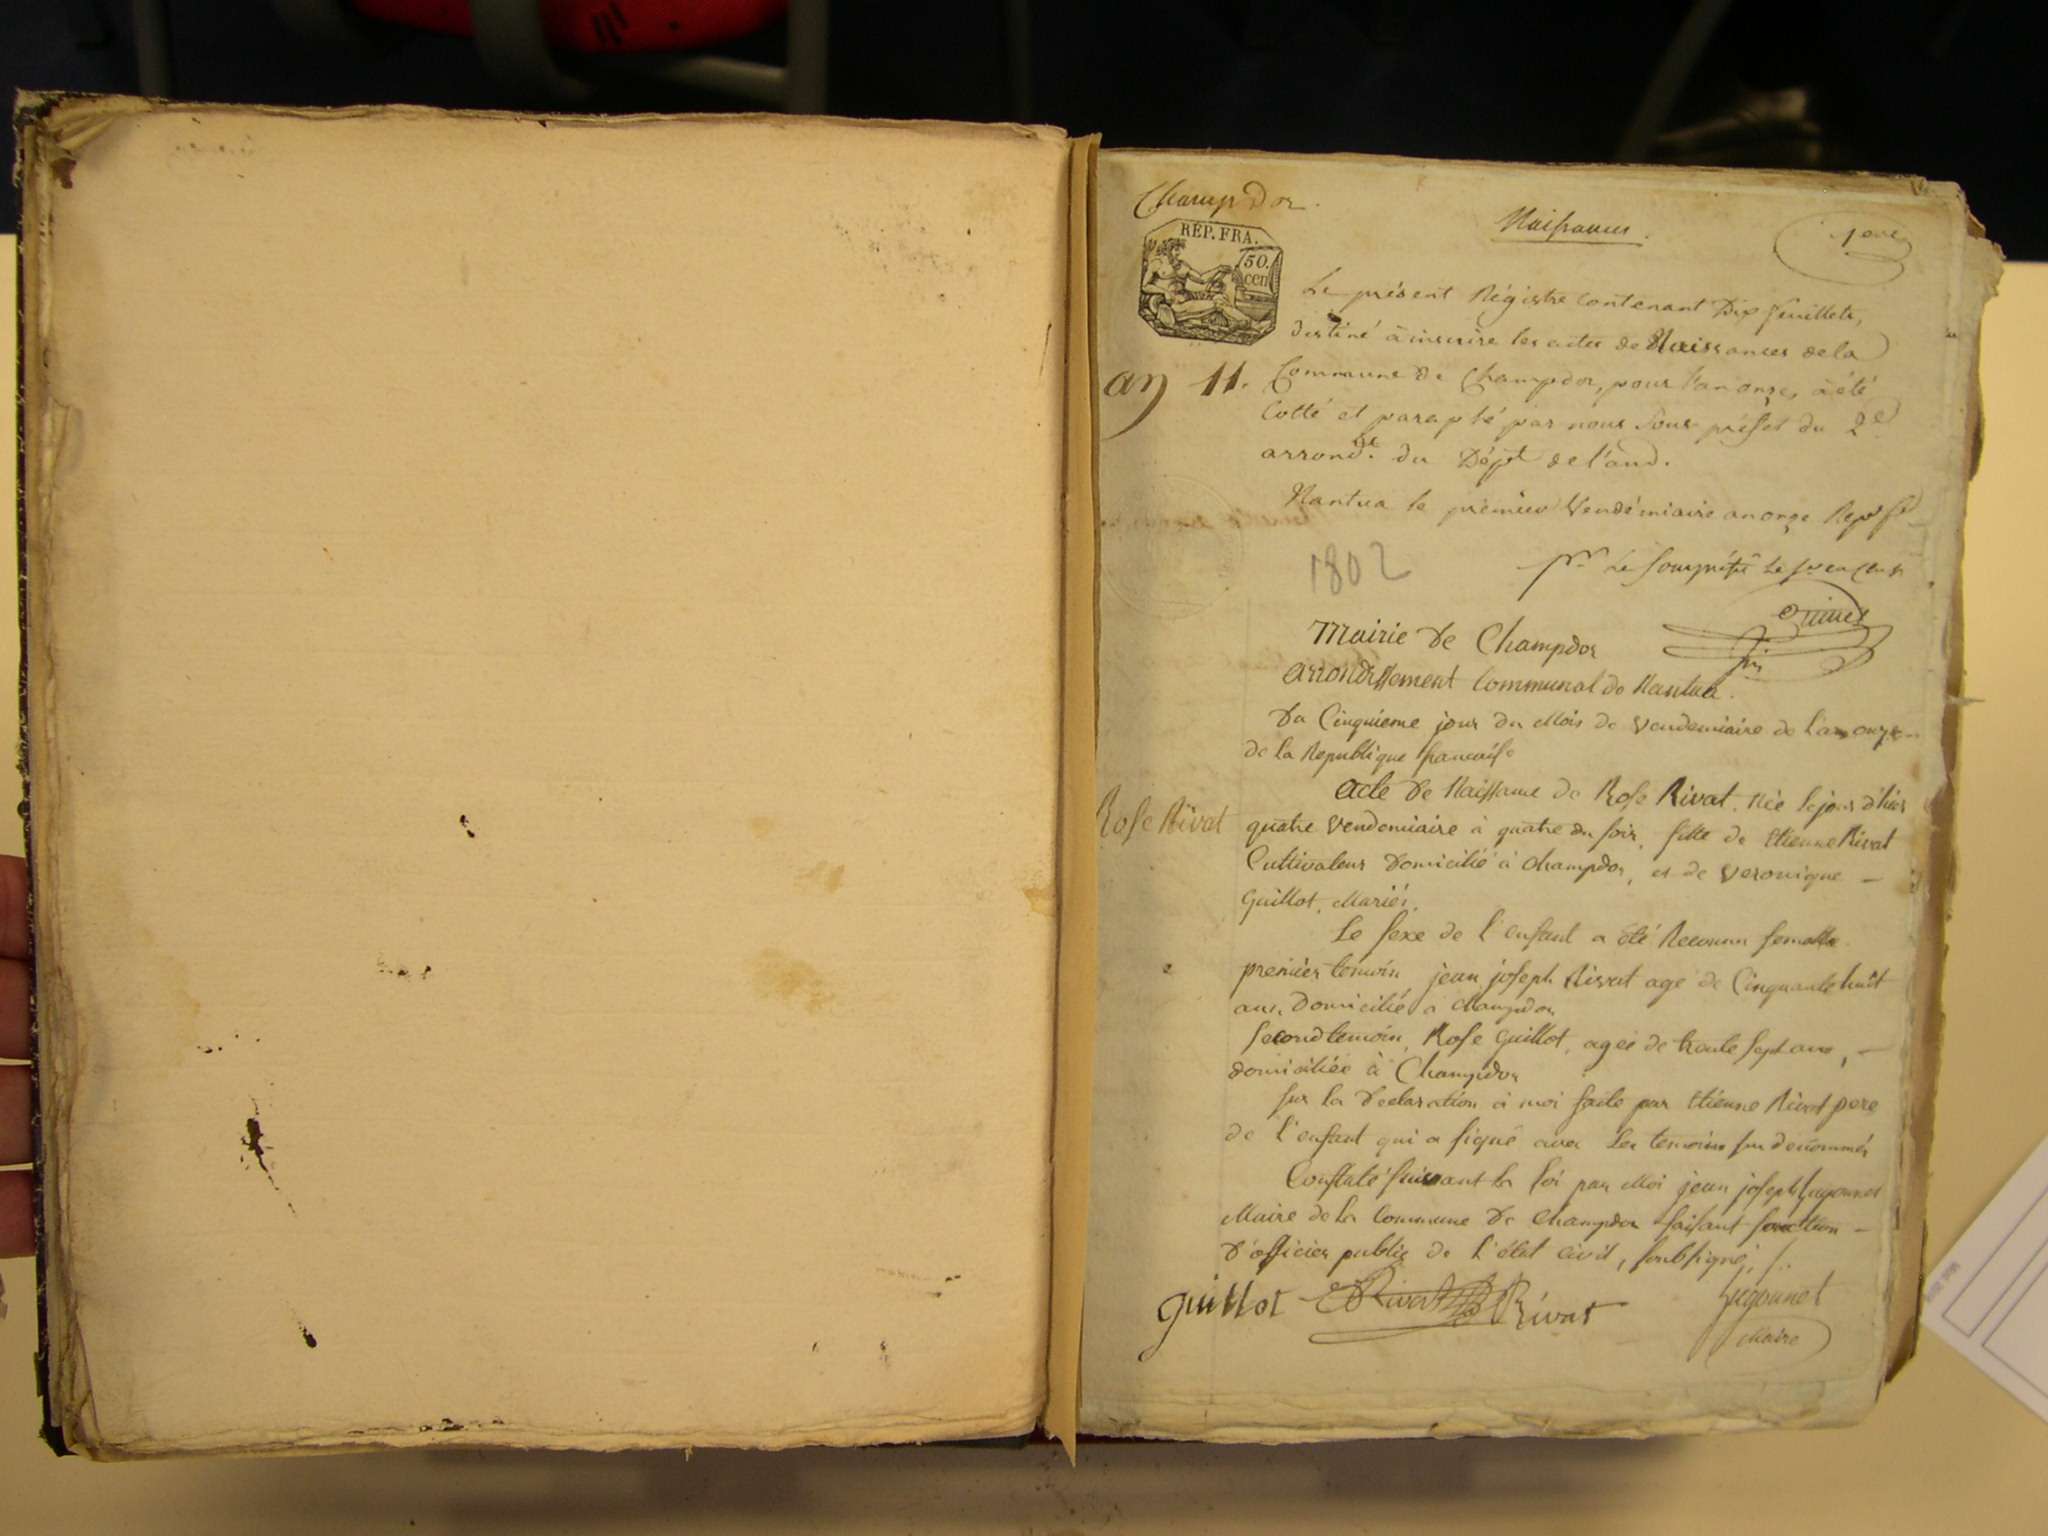 Champdor.
Naissances.
1er
REP. FRA.
50.
cen
Le présent Régistre contenant Dix feuillets,
destiné à inscrire les actes de Naissances de la
an 11.
Commune de Champdor, pour l'an onze, à été
Cotté et paraphé par nous Sous-préfet du 2e
arrondt. du Dépt de l'ain.
Nantua le premier Vendémiaire an onze
1802
Mairie de Champdor
arrondissement Communal de Nantua.
Du Cinquieme jour du Mois de Vendemiaire de l'an onze
de la Republique francaise
Acte de Naissance de Rose Rivat. née le jour d'hier
Rose Rivat
quatre Vendemiaire à quatre du soir, fille de Etienne Rivat
Cultivateur Domicilié à Champdor, et de Veronique
Guillot, Mariés.
Le sexe de l'enfant a été Reconnu femelle
premier temoin jean joseph Rivat age de Cinquante huit
ans, Domicilié a Champdor
Second temoin, Rose Guillot, agée de trente sept ans,
domiciliée à Champdor
sur la Declaration à moi faite par Etienne Rivat pere
de l'enfant qui a signé avec les temoins sus denommés
Constaté suivant la loi par Moi jean joseph
Maire de la Commune de Champdor faisant fonction
D'officier public de l'état civil, soubsigné,
guillot E Rivat Rivat
Maire